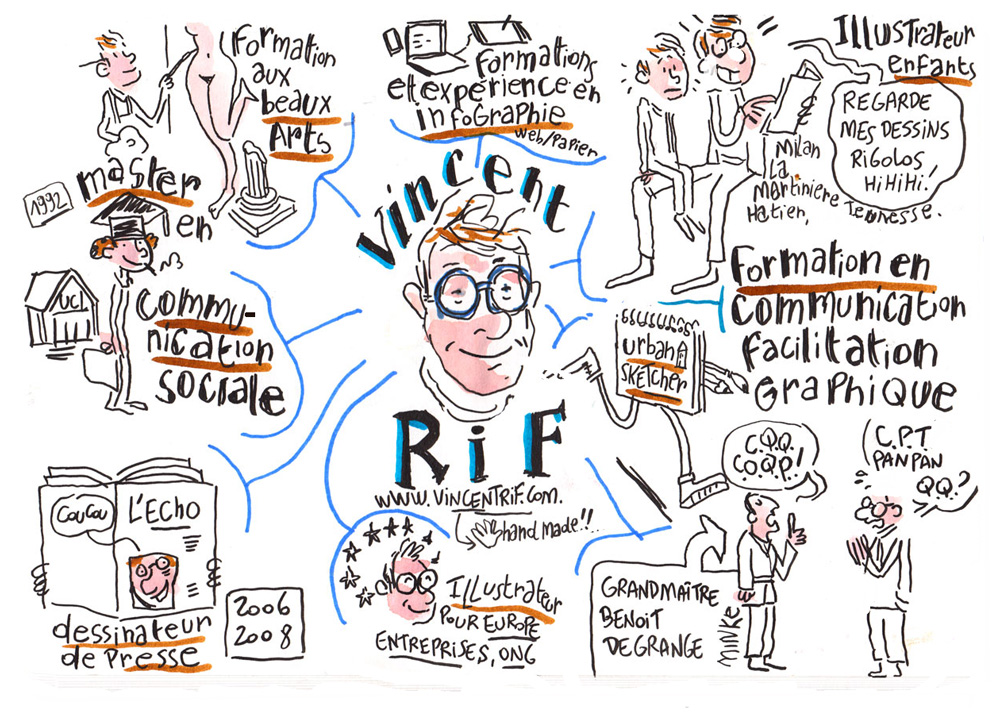 Formation
aux
beaux
Arts
Formations
et expérience en
infoGraphie
web/papier
Illustrateur
enfants
REGARDE
MES DESSINS
RiGOLOS
HiHiHi!
Milan
La
Martiniere
Hatier, Jeunesse.
1992
master
en
UCL
Commu-
nication
sociale
Vincent
RiF
www.VincentRiF.com.
hand made!!
urban
SKETCHER
Formation en
communication
facilitation
GraphiQue
C.Q.Q.
COQP!
C.P.T
PANPAN
QQ?
GRANDMAÎTRE
BENOIT
DEGRANGE
COUCOU
L'ECHO
dessinateur
de Presse
2006
2008
ILLustrateur
POUR EUROPE
ENTREPRISES, ONG